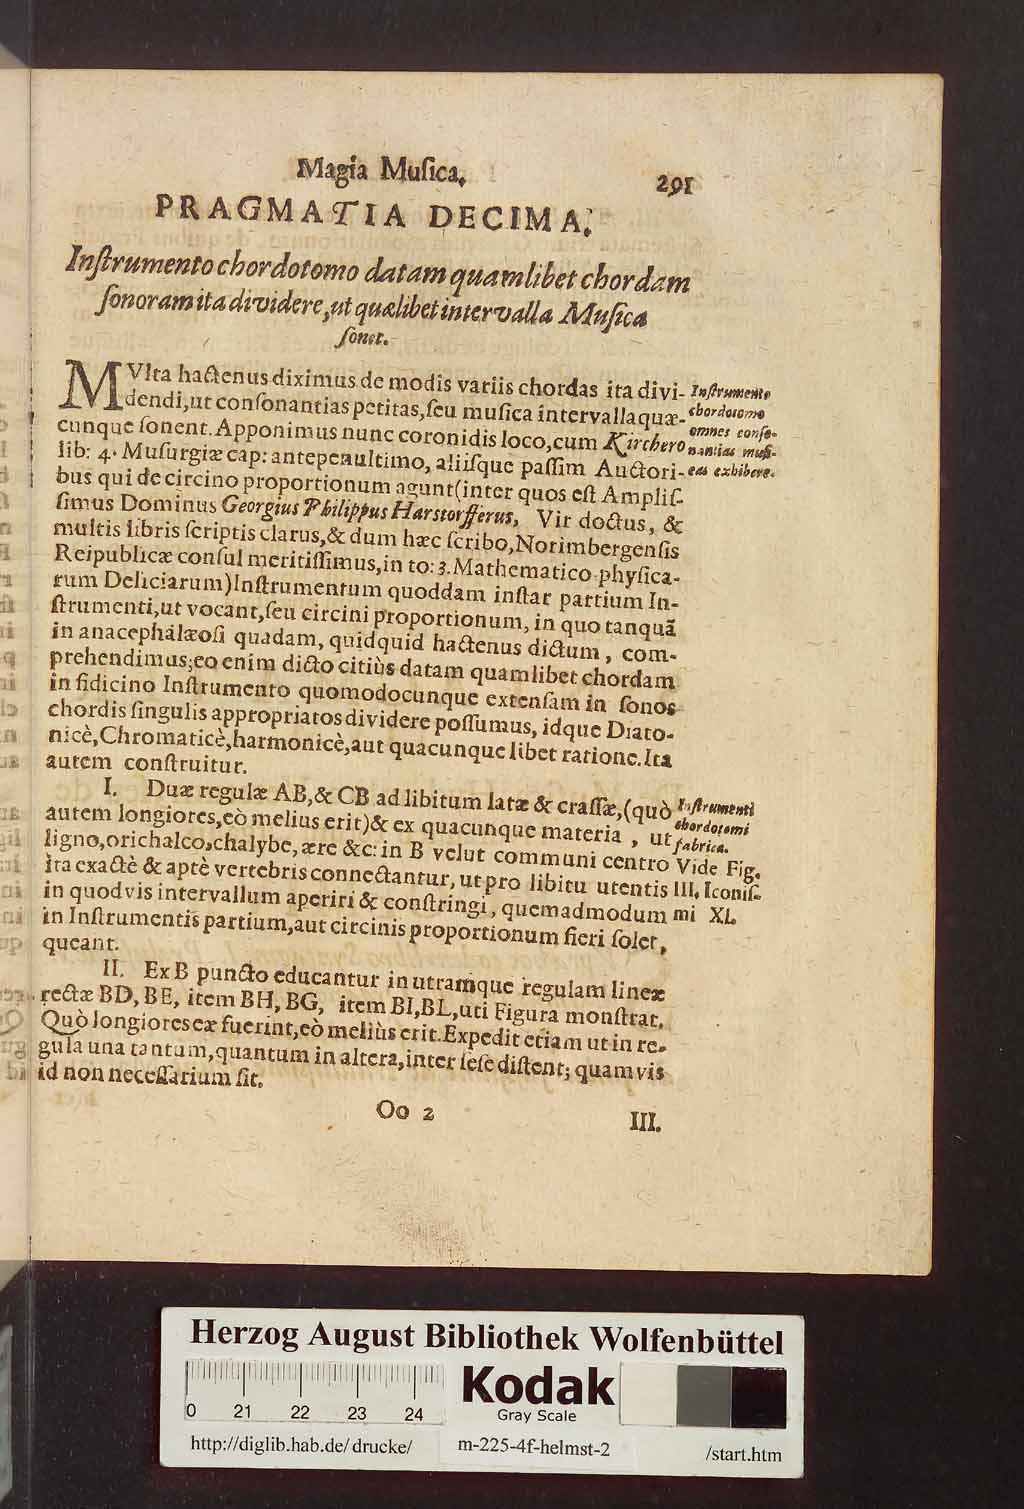 Magia Muſica.
291
PRAGMATIA DECIMA.
Inſtrumento chordotomo datam quamlibet chordam
ſonoram ita dividere, ut quælibet intervalla Muſica
ſonet.
MVlta hactenus diximus de modis variis chordas ita divi-
dendi, ut conſonantias petitas, ſeu muſica intervalla quæ-
cunque ſonent. Apponimus nunc coronidis loco, cum Kirchero
lib: 4. Muſurgiæ cap: antepenultimo, aliiſque paſſim Auctori-
bus qui de circino proportionum agunt (inter quos eſt Ampliſ-
ſimus Dominus Georgius Philippus Harstorfferus, Vir doctus, &
multis libris ſcriptis clarus, & dum hæc ſcribo, Norimbergenſis
Reipublicæ conſul meritiſſimus, in to: 3. Mathematico-phyſica-
rum Deliciarum) Inſtrumentum quoddam inſtar partium In-
ſtrumenti, ut vocant, ſeu circini proportionum, in quo tanquã
in anacephalæoſi quadam, quidquid hactenus dictum, com-
prehendimus; eo enim dicto citiùs datam quamlibet chordam
in fidicino Inſtrumento quomodocunque extenſam in ſonos
chordis ſingulis appropriatos dividere poſſumus, idque Diato-
nicè, Chromaticè, harmonicè, aut quacunque libet ratione. Ita
autem conſtruitur.
Inſtrumento
chordotomo
omnes conſo-
nantias muſi-
cas exhibere.
I. Duæ regulæ AB, & CB ad libitum latæ & craſſæ, (quò
autem longiores, eò melius erit) & ex quacunque materia, ut
ligno, orichalco, chalybe, ære &c: in B velut communi centro
ita exactè & aptè vertebris connectantur, ut pro libitu utentis
in quodvis intervallum aperiri & conſtringi, quemadmodum
in Inſtrumentis partium, aut circinis proportionum fieri ſolet,
queant.
Inſtrumenti
chordotomi
fabrica.
Vide Fig.
III. Iconiſ-
mi XI.
II. Ex B puncto educantur in utramque regulam lineæ
rectæ BD, BE, item BH, BG, item BI, BL, uti Figura monſtrat.
Quò longiores eæ fuerint, eò meliùs erit. Expedit etiam ut in re-
gula una tantum, quantum in altera, inter ſeſe diſtent; quamvis
id non neceſſarium ſit.
Oo 2
III.
Herzog August Bibliothek Wolfenbüttel
0 21 22 23 24
Kodak
Gray Scale
http://diglib.hab.de/drucke/
m-225-4f-helmst-2
/start.htm